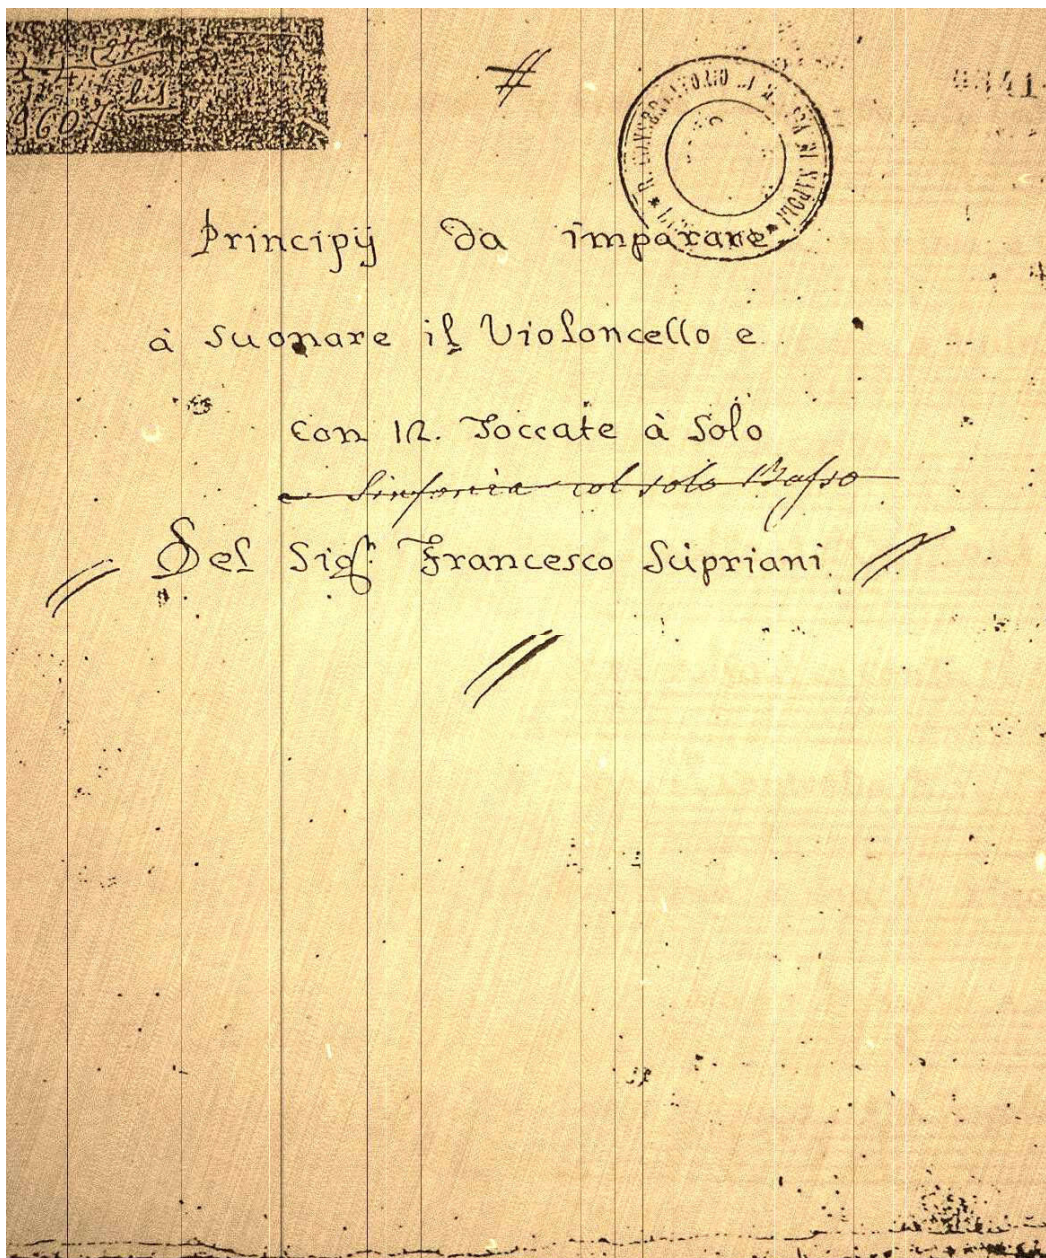 9607 bis
R. CONSERVATORIO DI MUSICA DI NAPOLI
Principij da imparare
à suonare il Violoncello e
con 12. Toccate à solo
e Sinfonia col solo Basso
Del Sig.r Francesco Supriani